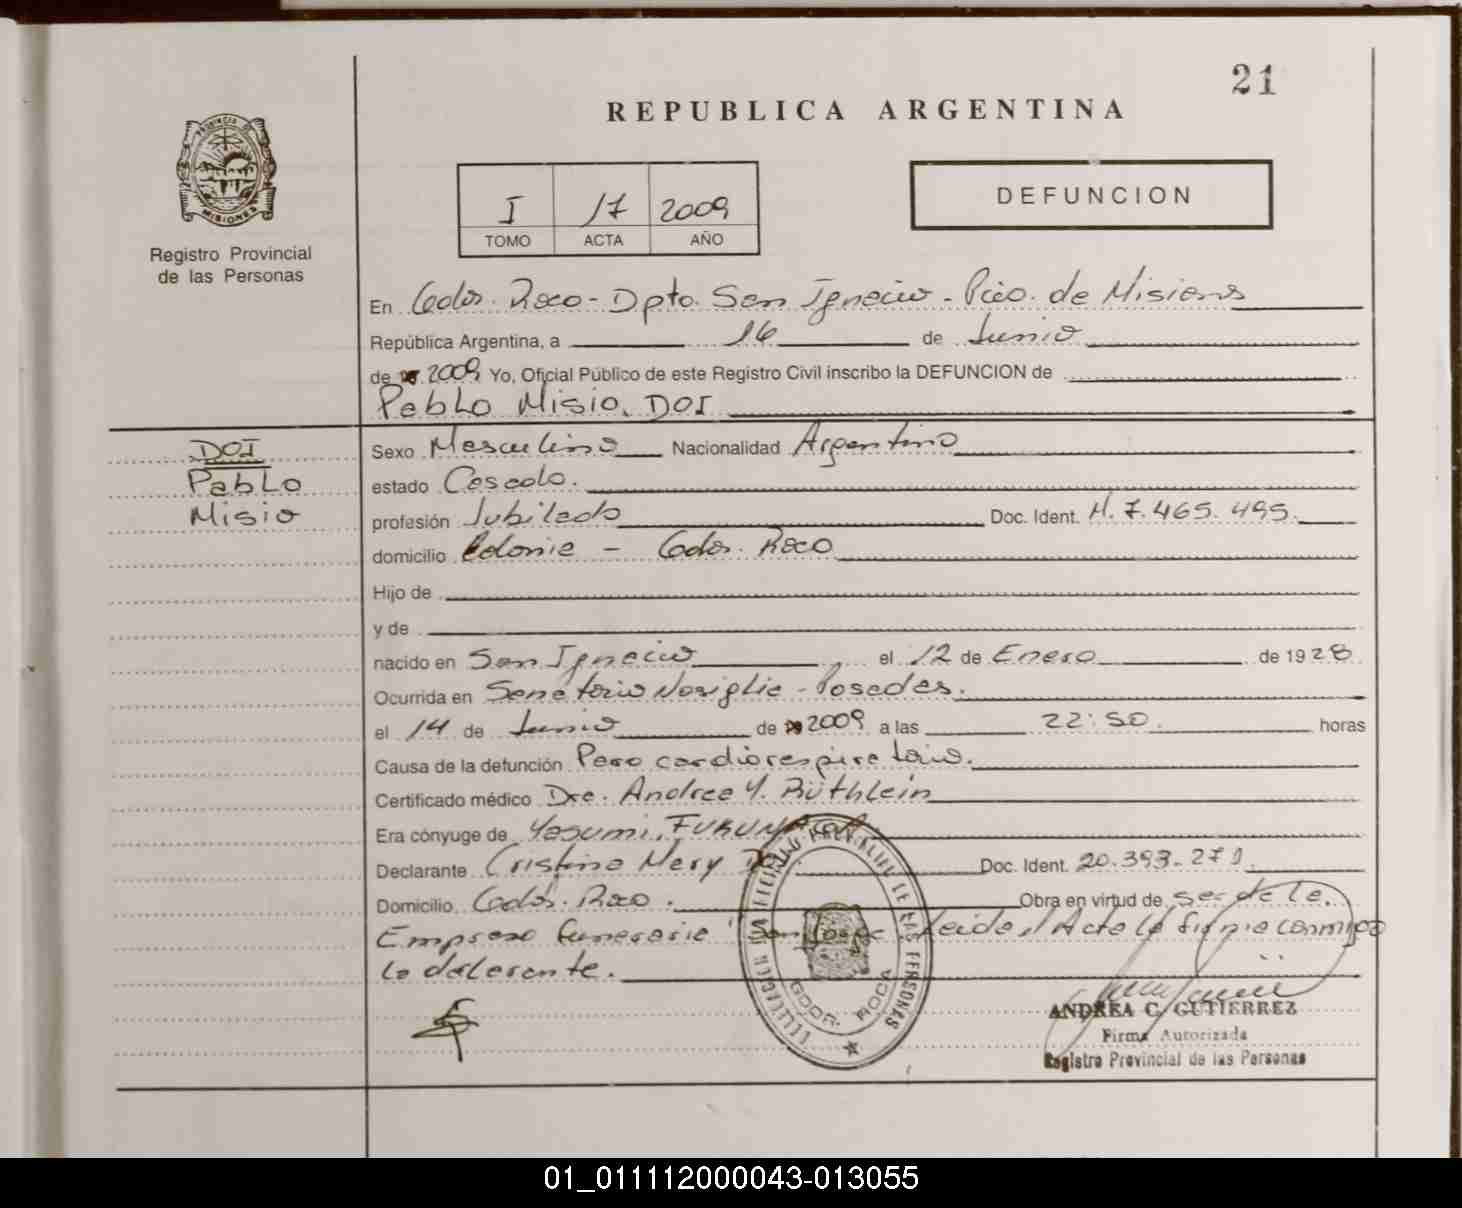 21
REPUBLICA ARGENTINA
PROVINCIA DE
MISIONES
Registro Provincial
de las Personas
I 17 2009
TOMO ACTA AÑO
DEFUNCION
En Gdor. Roca - Dpto. San Ignacio - Pcia. de Misiones
República Argentina, a 16 de Junio
de 2009 Yo, Oficial Público de este Registro Civil inscribo la DEFUNCION de
Pablo Misio, DOI
DOI
Pablo
Misio
Sexo Masculino Nacionalidad Argentino
estado Casado.
profesión Jubilado Doc. Ident. M. 7.465.495.
domicilio Colonia - Gdor. Roca
Hijo de
y de
nacido en San Ignacio el 12 de Enero de 1928
Ocurrida en Sanatorio Nosiglia - Posadas.
el 14 de Junio de 2009 a las 22:50. horas
Causa de la defunción Paro cardiorespiratorio.
Certificado médico Dra. Andrea Y. Rüthlein
Era cónyuge de Yasumi, FUKUNAGA
Declarante Cristina Mery Doc. Ident. 20.393.271
Domicilio Gdor. Roca. Obra en virtud de ser de la
Empresa funeraria "San Jorge" Leida el Acta la firma conmigo
la declarante.
DELEGACION DEL REGISTRO PROVINCIAL DE LAS PERSONAS
GDOR. ROCA
ANDREA C. GUTIERREZ
Firma Autorizada
Registro Provincial de las Personas
01_011112000043-013055